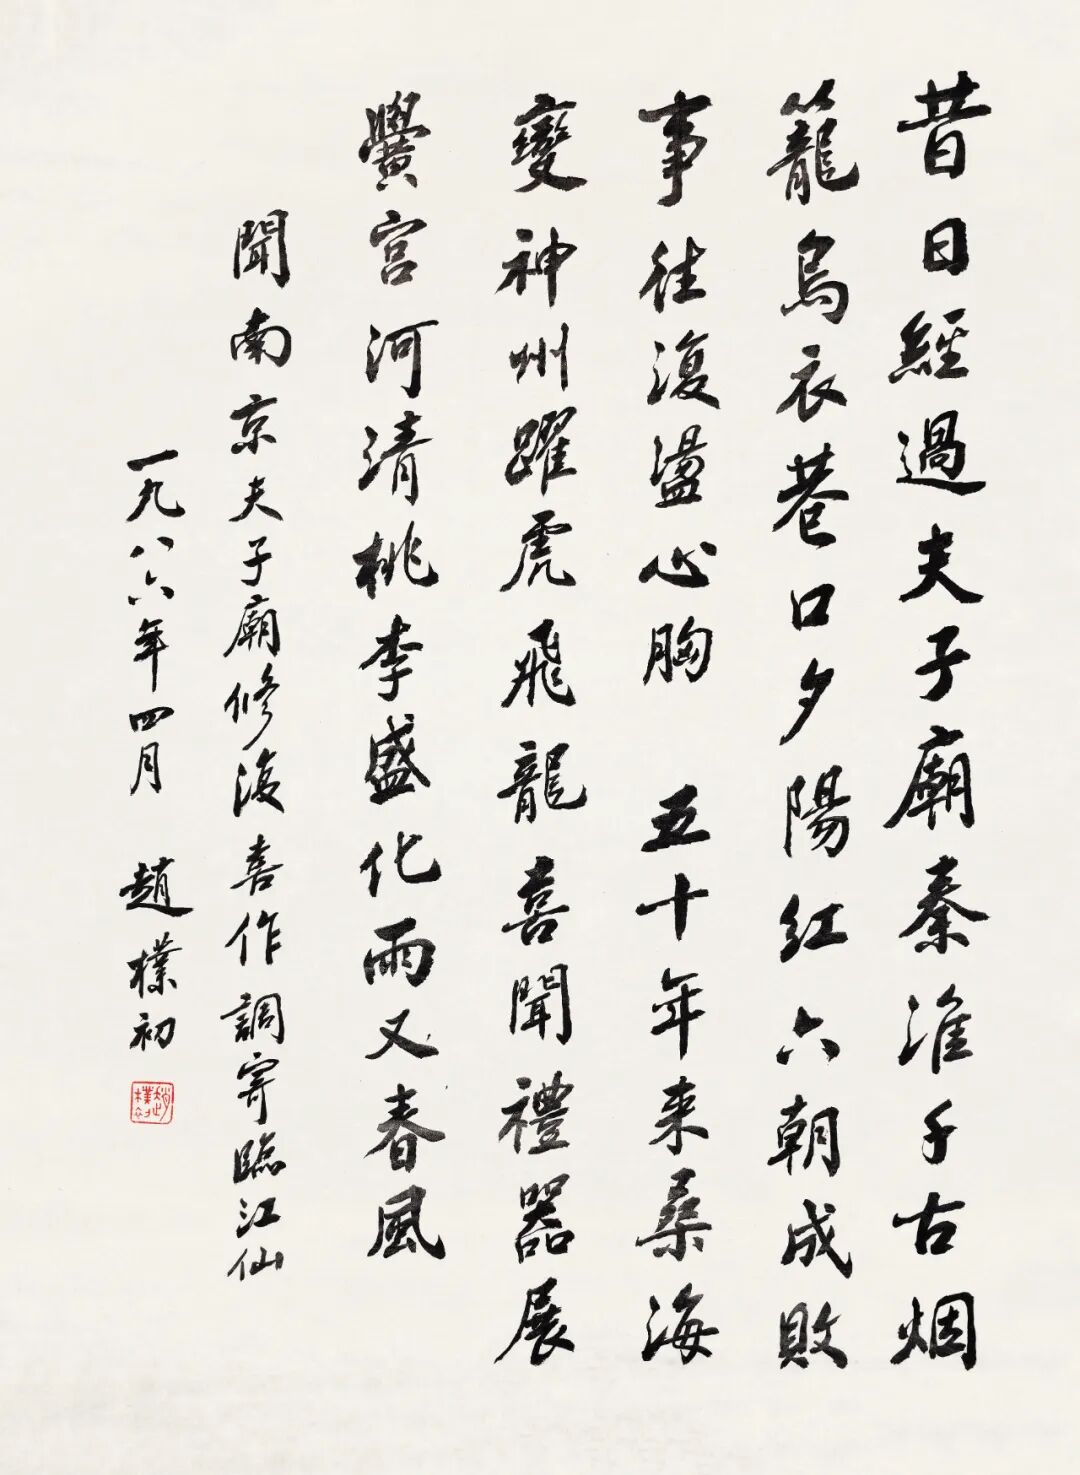 昔日經過夫子廟秦淮千古烟
籠烏衣巷口夕陽紅六朝成敗
事往復盪心胸 五十年来桑海
變神州躍虎飛龍喜聞禮器展
黌宫河清桃李盛化雨又春風
聞南京夫子廟修復喜作調寄臨江仙
一九八六年四月 趙樸初
趙樸初